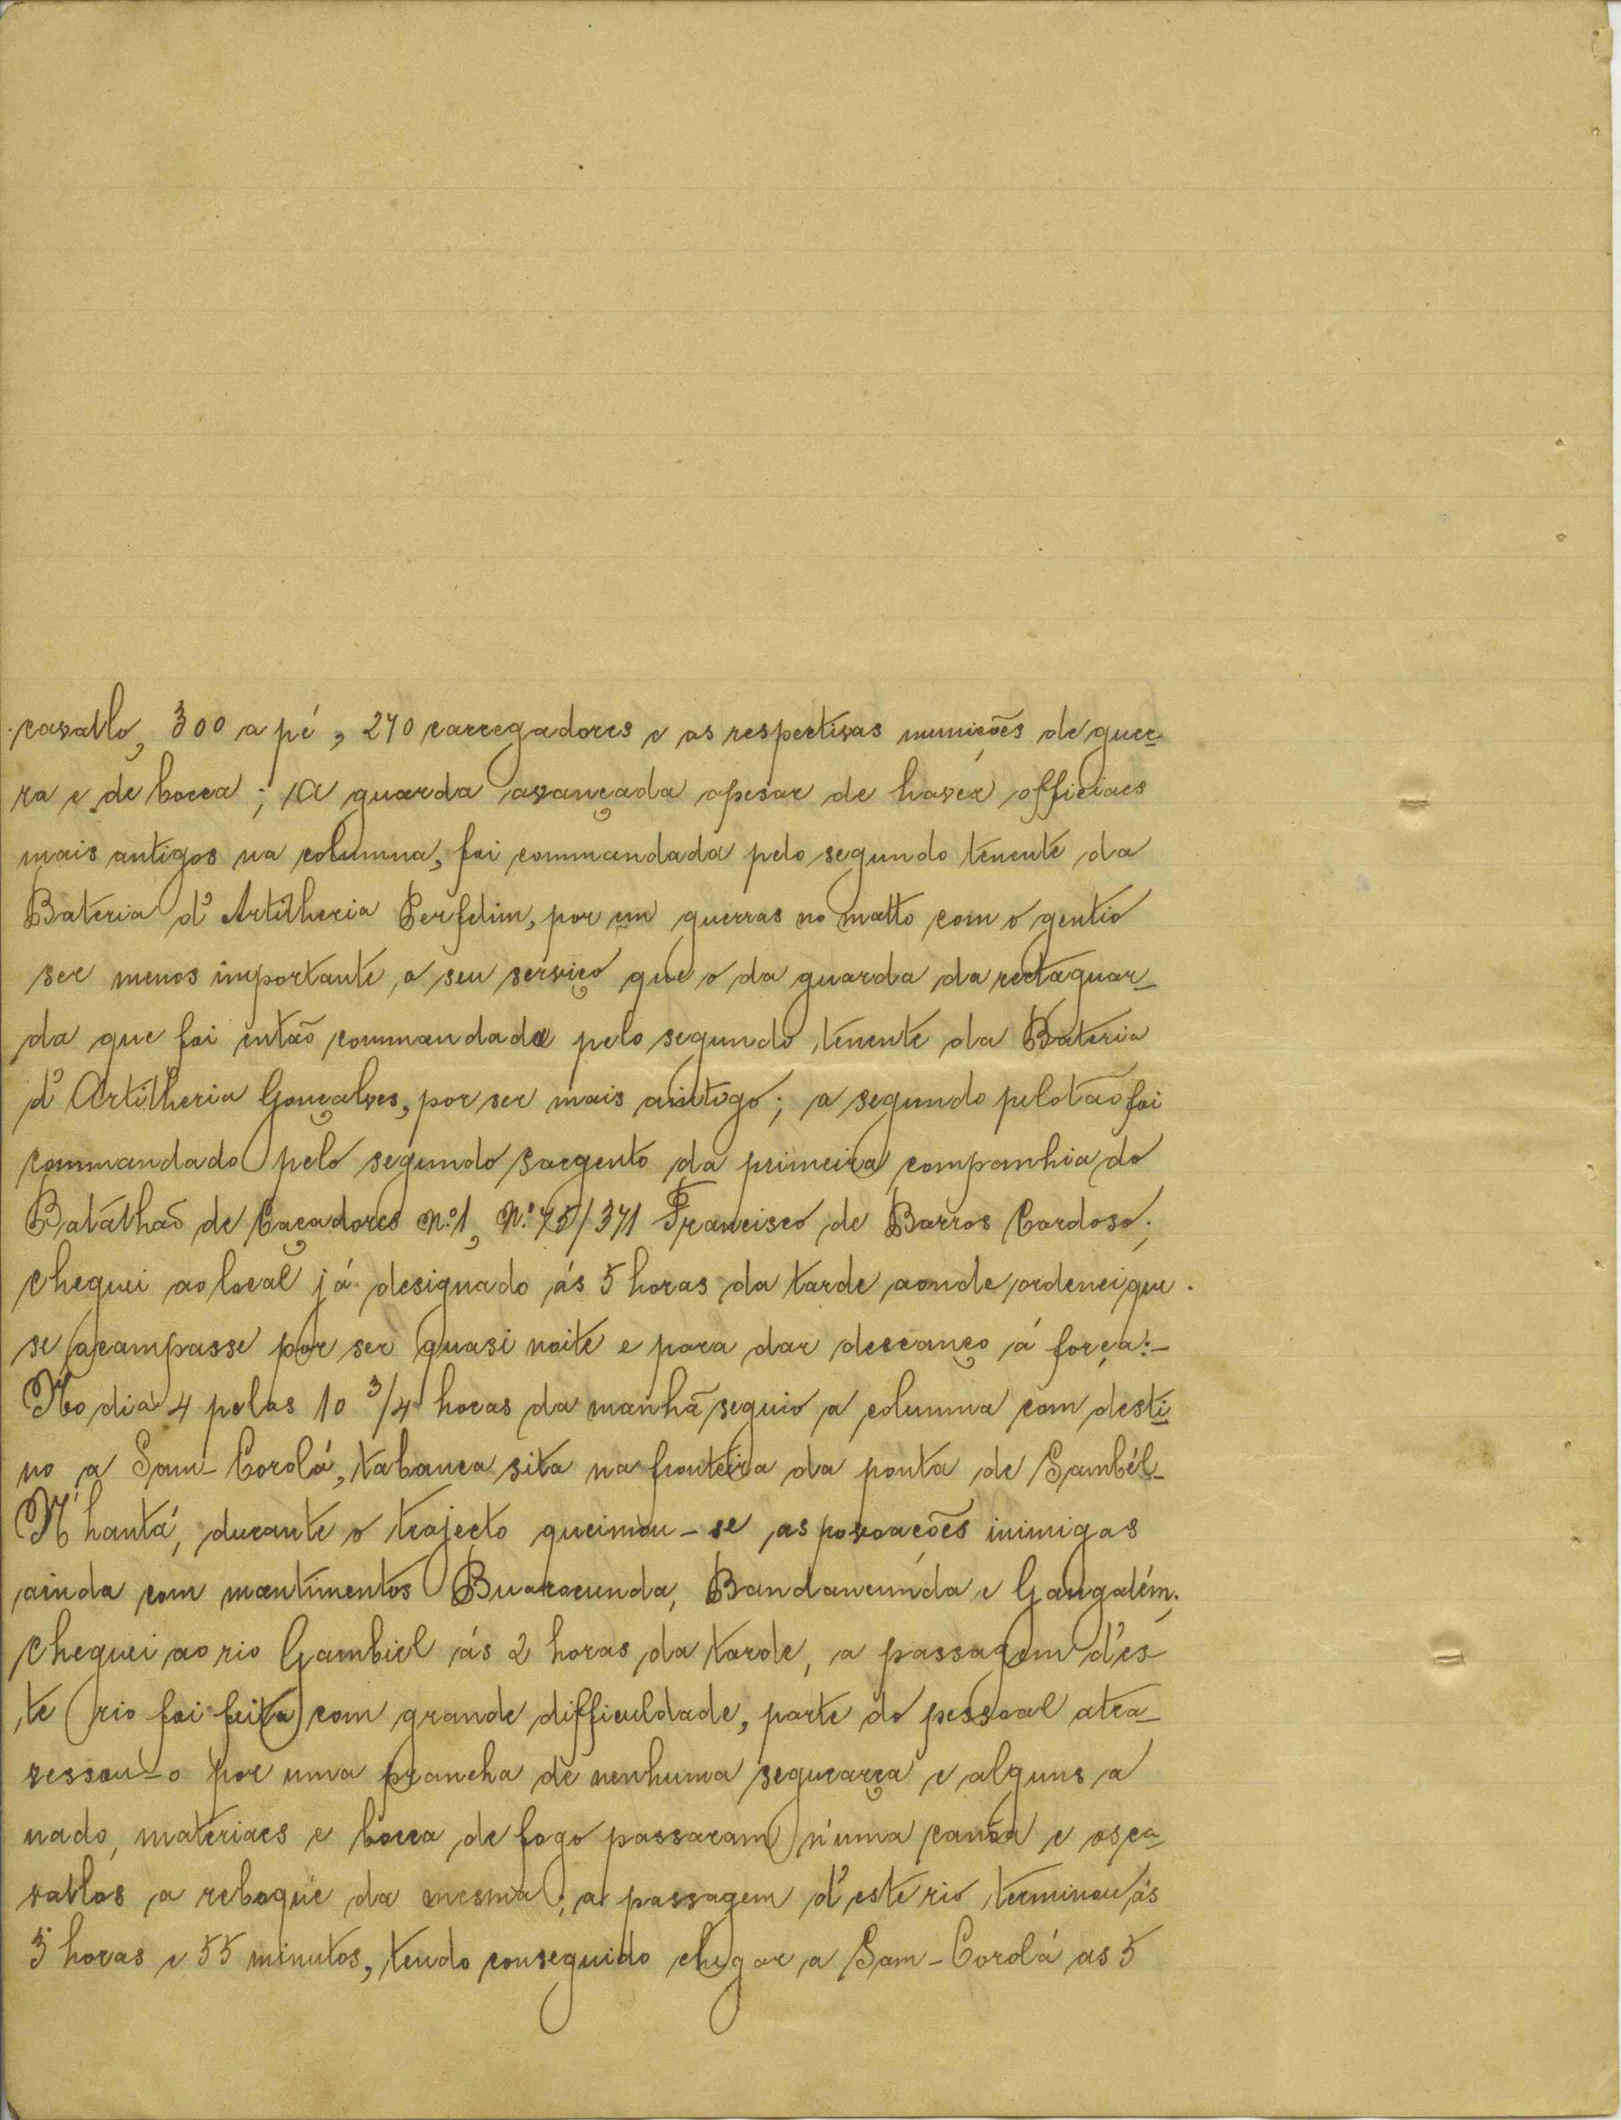 cavallo, 300 a pé, 270 carregadores e as respectivas munições de guer-
ra e de bocca; A guarda avançada apesar de haver officiaes
mais antigos na columna, foi commandada pelo segundo tenente da
Bateria d'Artilheria Perfelim, por em guerras no matto com o gentio
ser menos importante o seu serviço que o da guarda da rectaguar-
da que foi então commandada pelo segundo tenente da Bateria
d'Artilheria Gonçalves, por ser mais antigo; o segundo pelotão foi
commandado pelo segundo sargento da primeira companhia do
Batalhão de Caçadores N.º 1, N.º 75/371 Francisco de Barros Cardoso;
cheguei ao local já designado ás 5 horas da tarde aonde ordenei que
se acampasse por ser quasi noite e para dar descanço á força:-
No dia 4 pelas 10 3/4 horas da manhã seguio a columna com desti
no a Sam-Corolá, tabanca sita na fronteira da ponta de Sambél-
N'hantá, durante o trajecto queimou-se as povoações inimigas
ainda com mantimentos Buaracunda, Bandancunda e Gangalém;
Cheguei ao rio Gambiel ás 2 horas da tarde, a passagem d'es
te rio foi feita com grande difficuldade, parte do pessoal atra-
vessou-o por uma prancha de nenhuma segurança e alguns a
nado, materiaes e bocca de fogo passaram n'uma canôa e os ca-
vallos a reboque da mesma; a passagem d'este rio terminou ás
3 horas e 55 minutos, tendo conseguido chegar a Sam-Corolá as 5